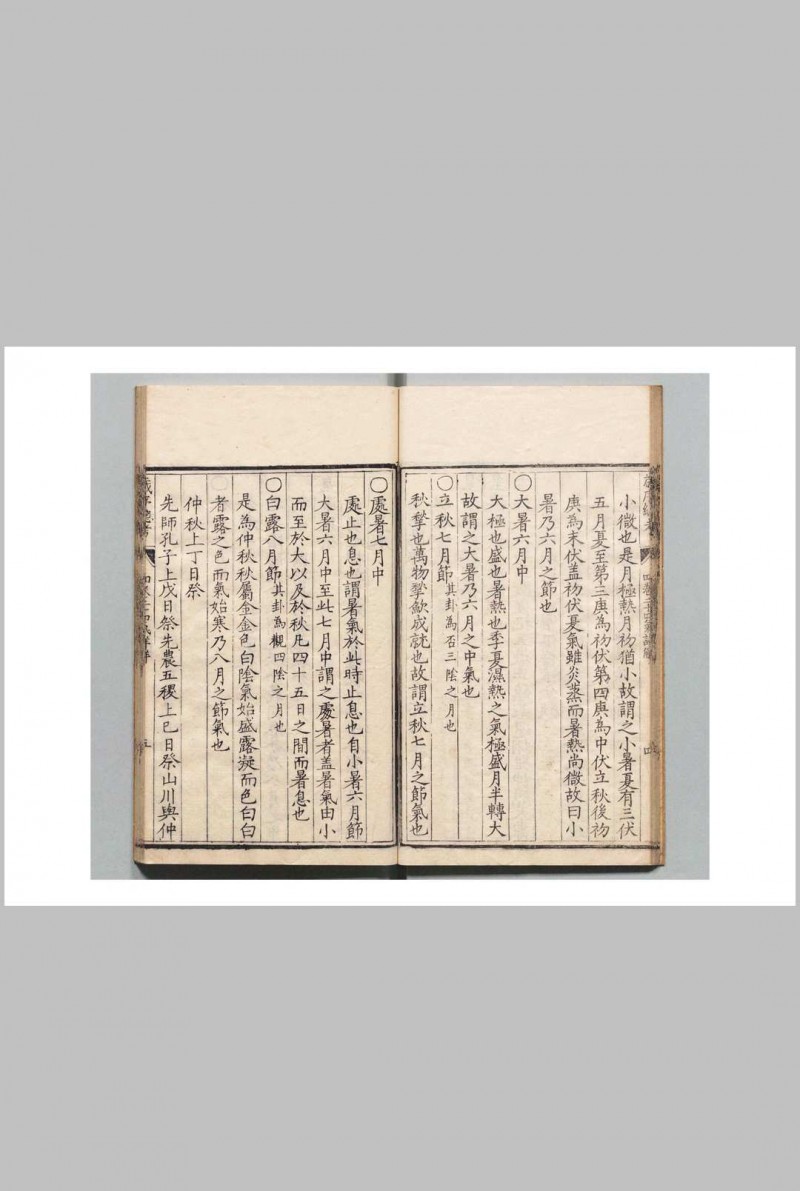 小微也是月極熱月初猶小故謂之小暑夏有三伏
五月夏至第三庚為初伏第四庚為中伏立秋後初
庚為末伏盖初伏夏氣雖炎蒸而暑熱尚微故曰小
暑乃六月之節也
○大暑六月中
大極也盛也暑熱也季夏濕熱之氣極盛月半轉大
故謂之大暑乃六月之中氣也
○立秋七月節其卦為否三陰之月也
秋揫也萬物揫歛成就也故謂立秋七月之節氣也
○處暑七月中
處止也息也謂暑氣於此時止息也自小暑六月節
大暑六月中至此七月中謂之處暑者盖暑氣由小
而至於大以及於秋凡四十五日之間而暑息也
○白露八月節其卦為觀四陰之月也
是為仲秋秋屬金金色白陰氣始盛露凝而色白白
者露之色而氣始寒乃八月之節氣也
仲秋上丁日祭
先師孔子上戊日祭先農五稷上巳日祭山川與仲
五